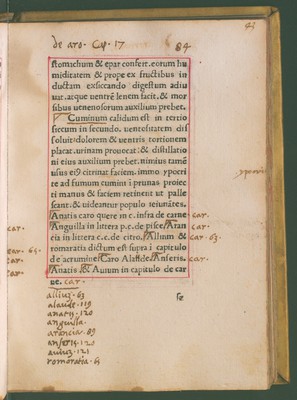 de aro. Cap. 17
84
stomachum & epar confert. eorum hu
miditatem & prope ex fructibus in
ductam exsiccando digestum adiu
uat. atque uentrē lenem facit. & mor
sibus uenenosorum auxilium prebet.
Cuminum calidum est in tertio
siccum in secundo. uentositatem dis
soluit: dolorem & uentris tortionem
placat. urinam prouocat: & distillatio
ni eius auxilium prebet. nimius tamē
usus citrinat faciem. immo ypocri
te ad fumum cumini i prunas proiec
ti manus & faciem retinent ut palle
scant. & uideantur populo ieiunātes.
Anatis caro quere in c. infra de carne car.
Anguilla in littera p.c. de pisce. Aran
car. cia in littera c.c. de citro. Allium & car. 63.
romaratia dictum est supra i capitulo
de acrumine. Caro Alaudę. Anseris. car.
Anatis. & Auium in capitulo de car
ue. car.
se
allium. 63
alaude. 119
anatis. 120
anguilla.
arancia. 89
anseris. 120
auium. 121
romoratia. 63